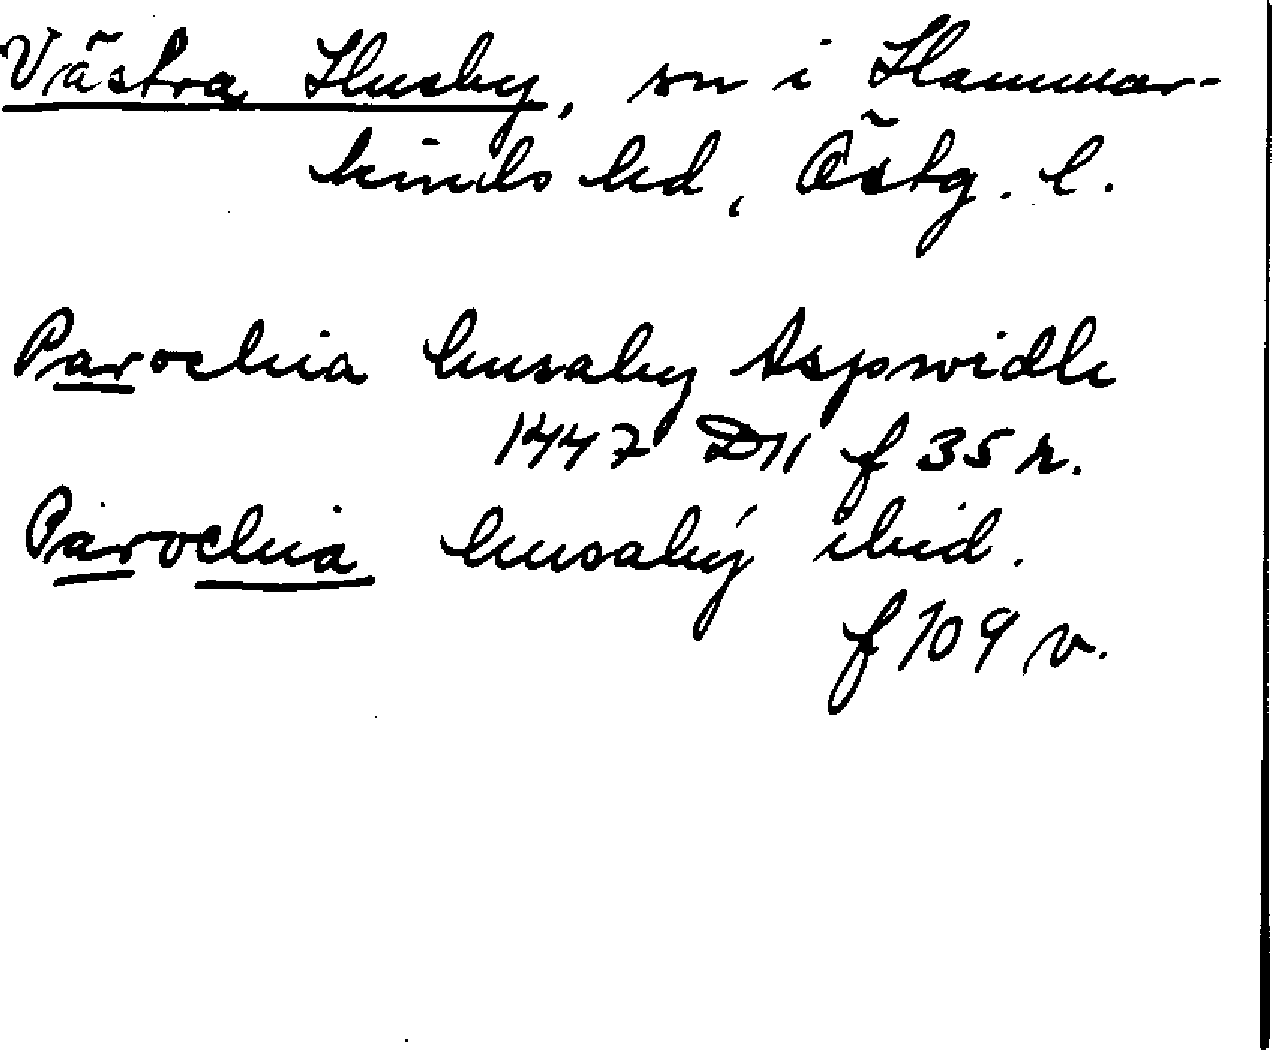 Västra Husby, sn i Hammar-
kinds hd, Östg. l.
Parochia husaby Aspwidh
1447 D11 f 35 r.
Parochia husaby ibid.
f 109 v.